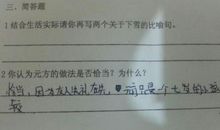 三、简答题
1 结合生活实际请你再写两个关于下雪的比喻句。
2 你认为元方的做法是否恰当?为什么?
恰当,因为友人失礼在先,元方只是个七岁的小
孩